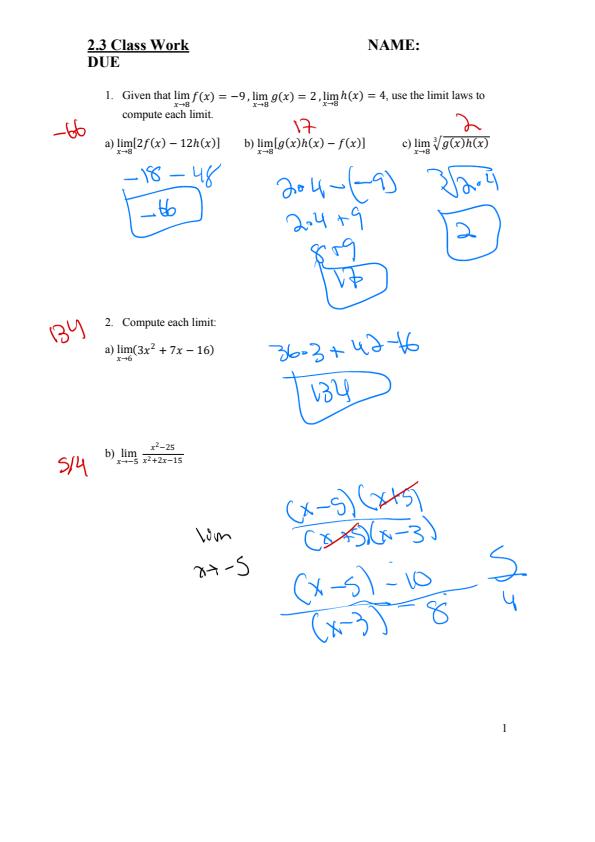 2.3 Class Work NAME:
DUE
1. Given that lim x→8 f(x) = −9, lim x→8 g(x) = 2, lim x→8 h(x) = 4, use the limit laws to
compute each limit.
-66 17 2
a) lim x→8 [2f(x) − 12h(x)] b) lim x→8 [g(x)h(x) − f(x)] c) lim x→8 ∛g(x)h(x)
-18 - 48 2•4 -(-9) ∛2•4
-66 2•4 +9 2
8+9
17
134 2. Compute each limit:
a) lim x→6 (3x² + 7x − 16) 36•3 + 42 -16
134
5/4 b) lim x→−5 x²−25 / x²+2x−15
(x-5)(x+5)
lim (x+5)(x-3)
x→-5 (x-5) -10 5
(x-3) -8 4
1